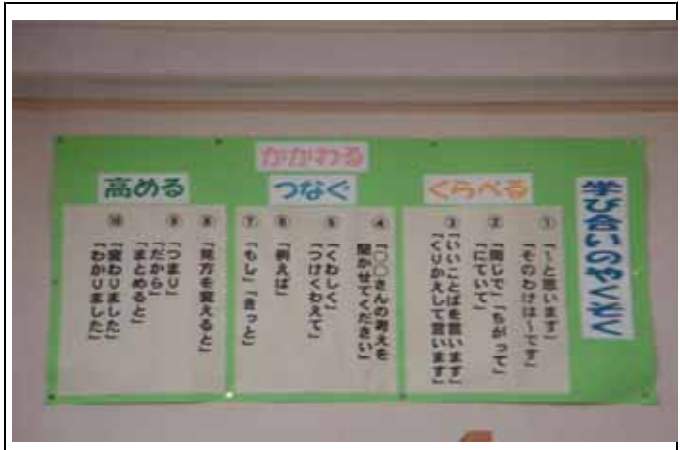 学び合いのやくそく
かかわる
くらべる
①「～と思います」
「そのわけは～です」
②「同じで」「ちがって」
「にていて」
③「いいことばを言います」
「くりかえして言います」
つなぐ
④「○○さんの考えを
聞かせてください」
⑤「くわしく」
「つけくわえて」
⑥「例えば」
⑦「もし」「きっと」
高める
⑧「見方を変えると」
⑨「つまり」
「だから」
「まとめると」
⑩「変わりました」
「わかりました」